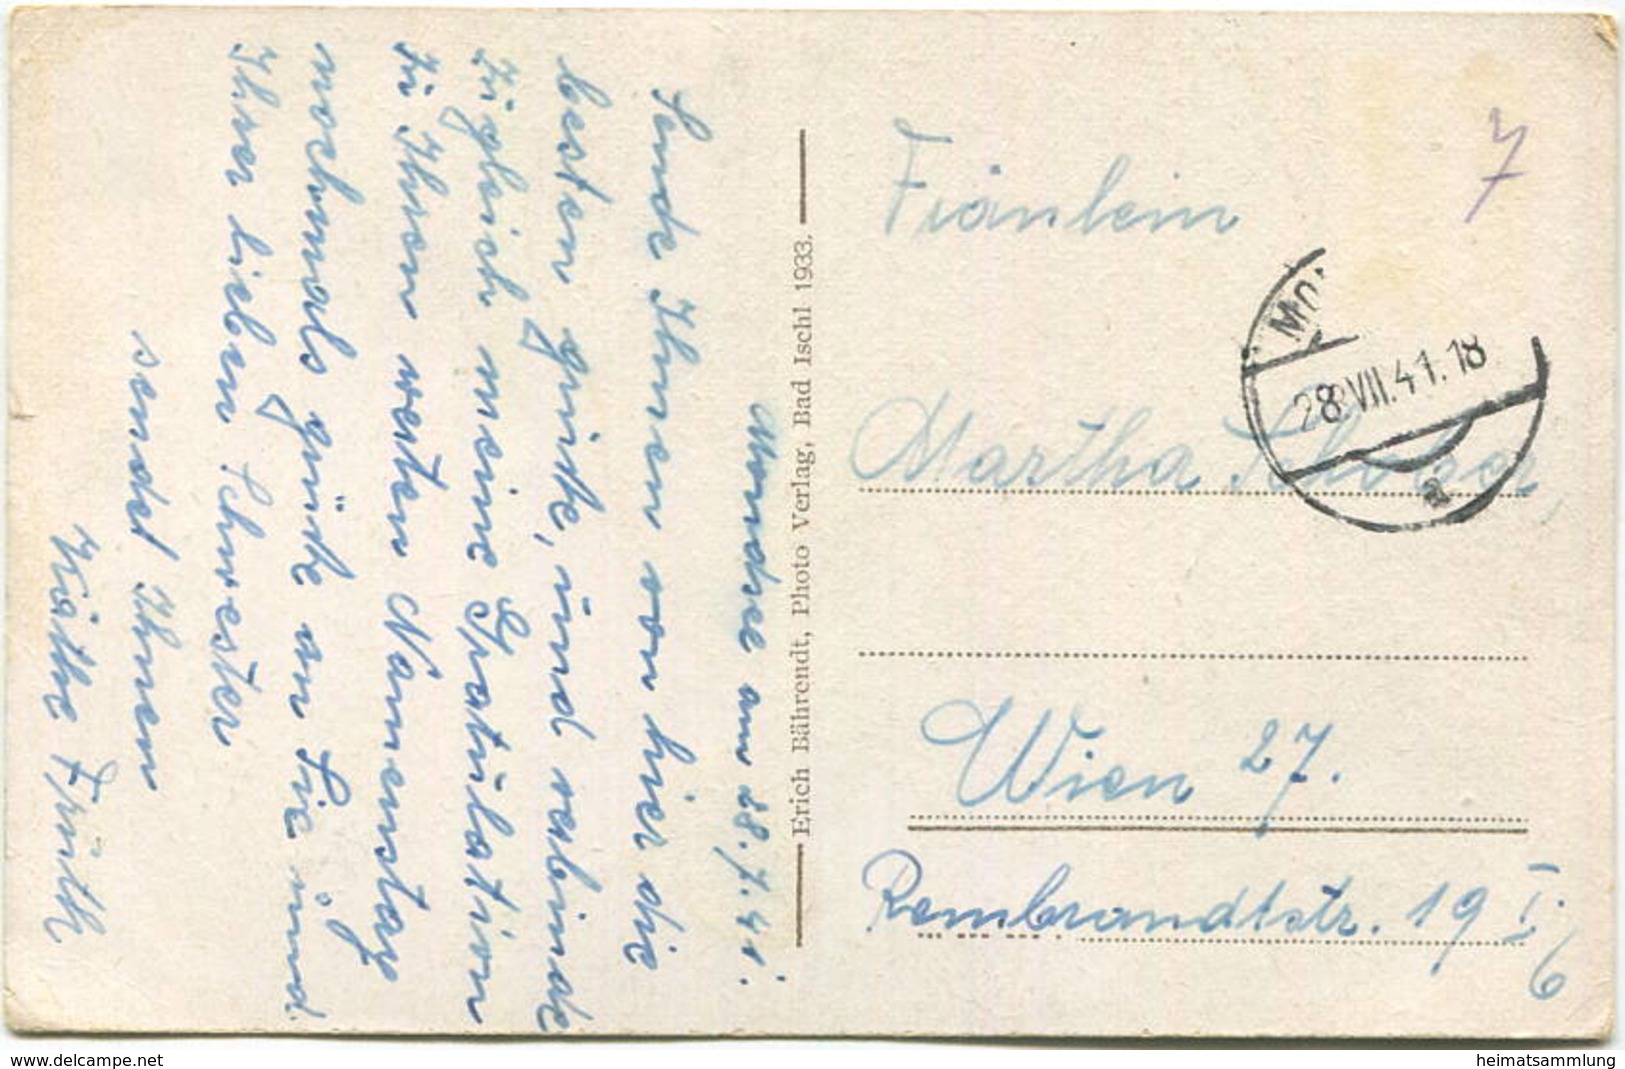 Mondsee am 28.7.41.
Sende Ihnen von hier die
besten grüße, und verbinde
zugleich meine Gratulation
zu Ihren werten Namenstag
nochmals grüße an Sie und
Ihrer lieben Schwester
sendet Ihnen
Käthe Früth
Erich Bährendt, Photo Verlag, Bad Ischl 1933.
7
Fräulein
MO
28.VII.41.18
a
Martha
Wien 27.
Rembrandtstr. 19 I.
6
www.delcampe.net
heimatsammlung